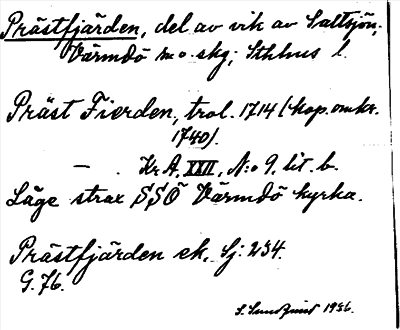 Prästfjärden, del av vik av Saltsjön,
Värmdö sn o. skg; Sthlms l.
Präst Fierden, trol. 1714 (kop. omkr.
1740).
— . Kr. A. XXII, N:o 9, lit. b.
Läge strax SSÖ Värmdö kyrka.
Prästfjärden ek. Sj. 234.
G. 76.
S. Sundqvist 1936.